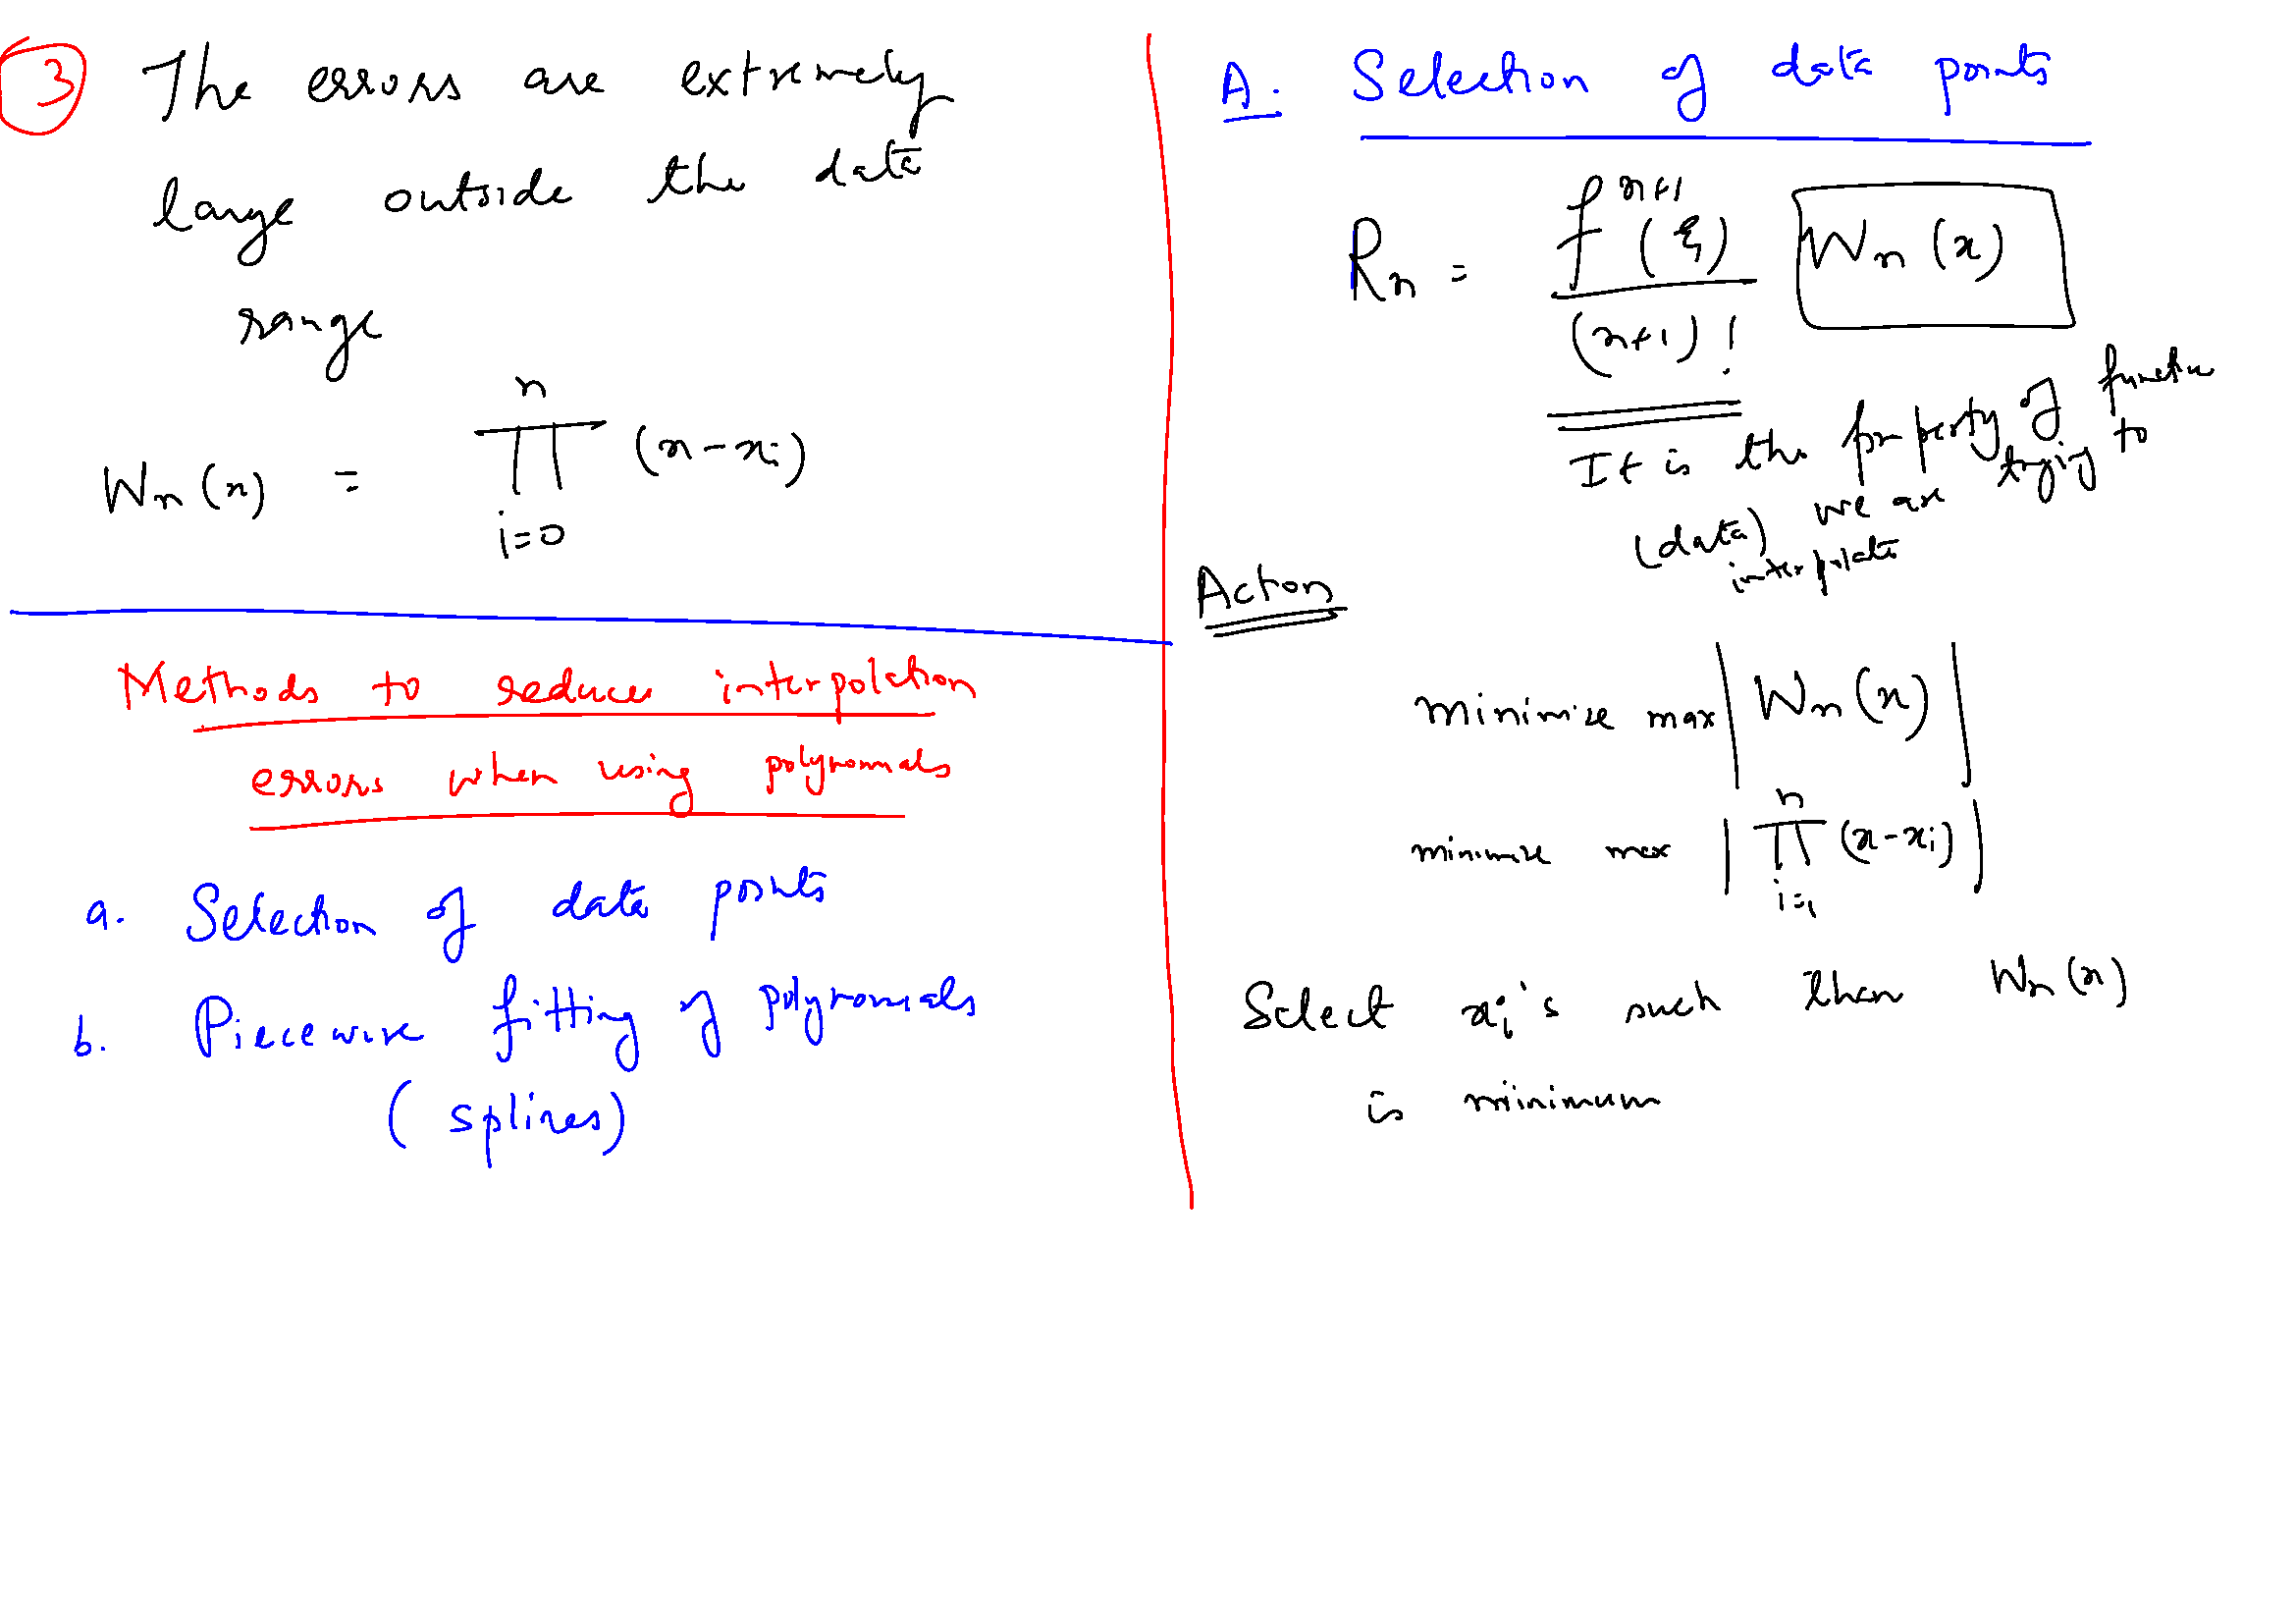 3 The errors are extremely
large outside the data
range
Wn(x) = n ∏ i=0 (x-xi)
Methods to reduce interpolation
errors when using polynomials
a. Selection of data points
b. Piecewise fitting of polynomials
(splines)
A. Selection of data points
Rn = f^n+1(ξ) / (n+1)! Wn(x)
It is the property of function
(data) we are trying to
interpolate
Action
minimize max |Wn(x)|
minimize max | n ∏ i=1 (x-xi) |
Select xi's such than Wn(x)
is minimum